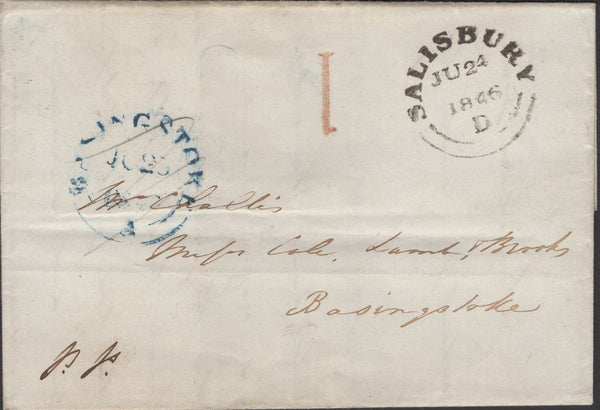 SALISBURY
JU 24
1846
D
1
BASINGSTOKE
JU 25
A
Mr Challis
Messrs Cole, Lamb & Brooks
Basingstoke
p. p.